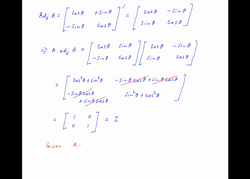 Adj A = [ Cosθ + Sinθ ]' = [ Cosθ - Sinθ ]
[ - Sinθ Cosθ ] [ Sinθ Cosθ ]
⇒ A · adj A = [ Cosθ Sinθ ] [ Cosθ - Sinθ ]
[ - Sinθ Cosθ ] [ Sinθ Cosθ ]
= [ Cos²θ + Sin²θ - Sinθ Cosθ + Sinθ Cosθ ]
[ - Sinθ Cosθ + Sinθ Cosθ Sin²θ + Cos²θ ]
= [ 1 0 ] = I
[ 0 1 ]
Given A ·